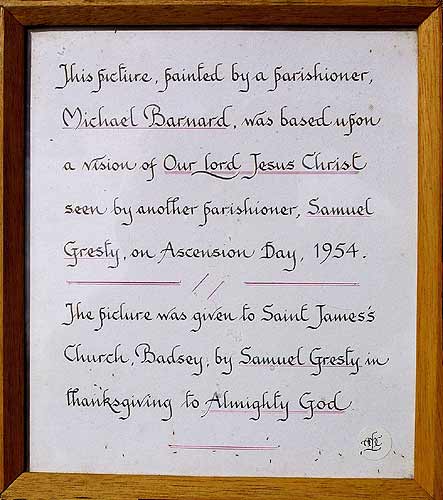 This picture, painted by a parishioner,
Michael Barnard, was based upon
a vision of Our Lord Jesus Christ
seen by another parishioner, Samuel
Gresty, on Ascension Day, 1954.
The picture was given to Saint James's
Church, Badsey, by Samuel Gresty in
thanksgiving to Almighty God